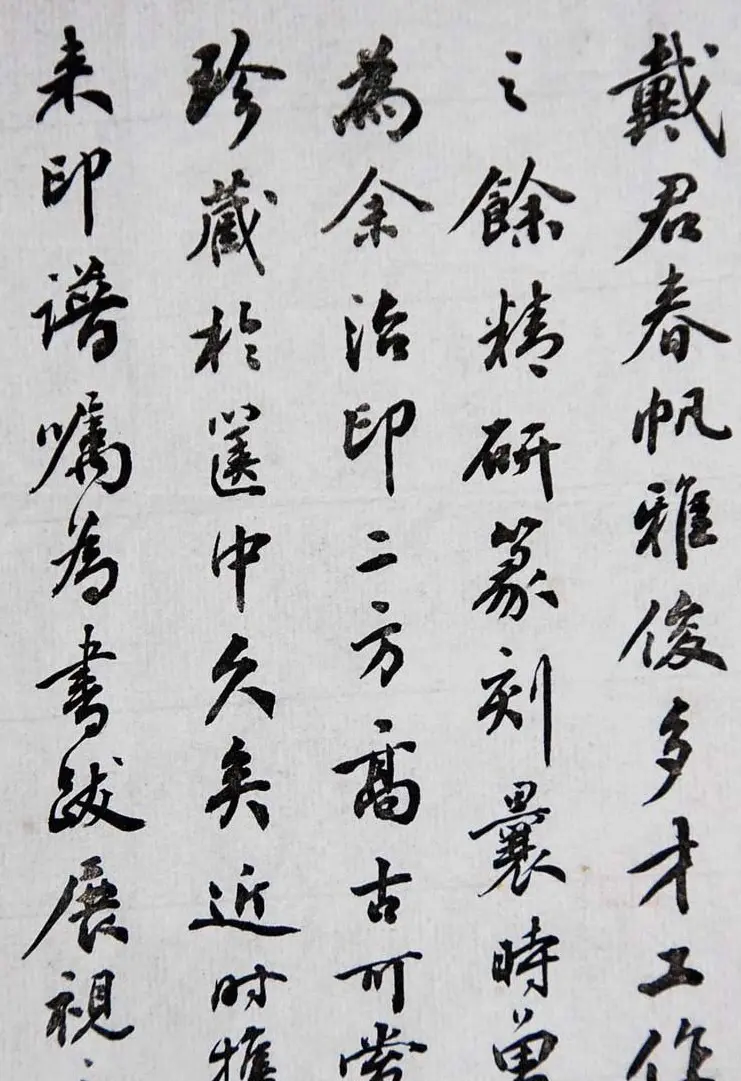 戴君春帆雅俊多才工作
之餘精研篆刻曩時曾
為余治印二方高古可賞
珍藏於篋中久矣近时携
来印谱嘱為書跋展視